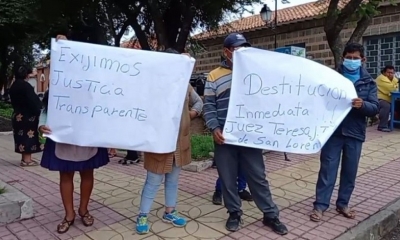 Exijimos
Justicia
Transparente
Destitución
Inmediata
Juez Teresa
de San Loren